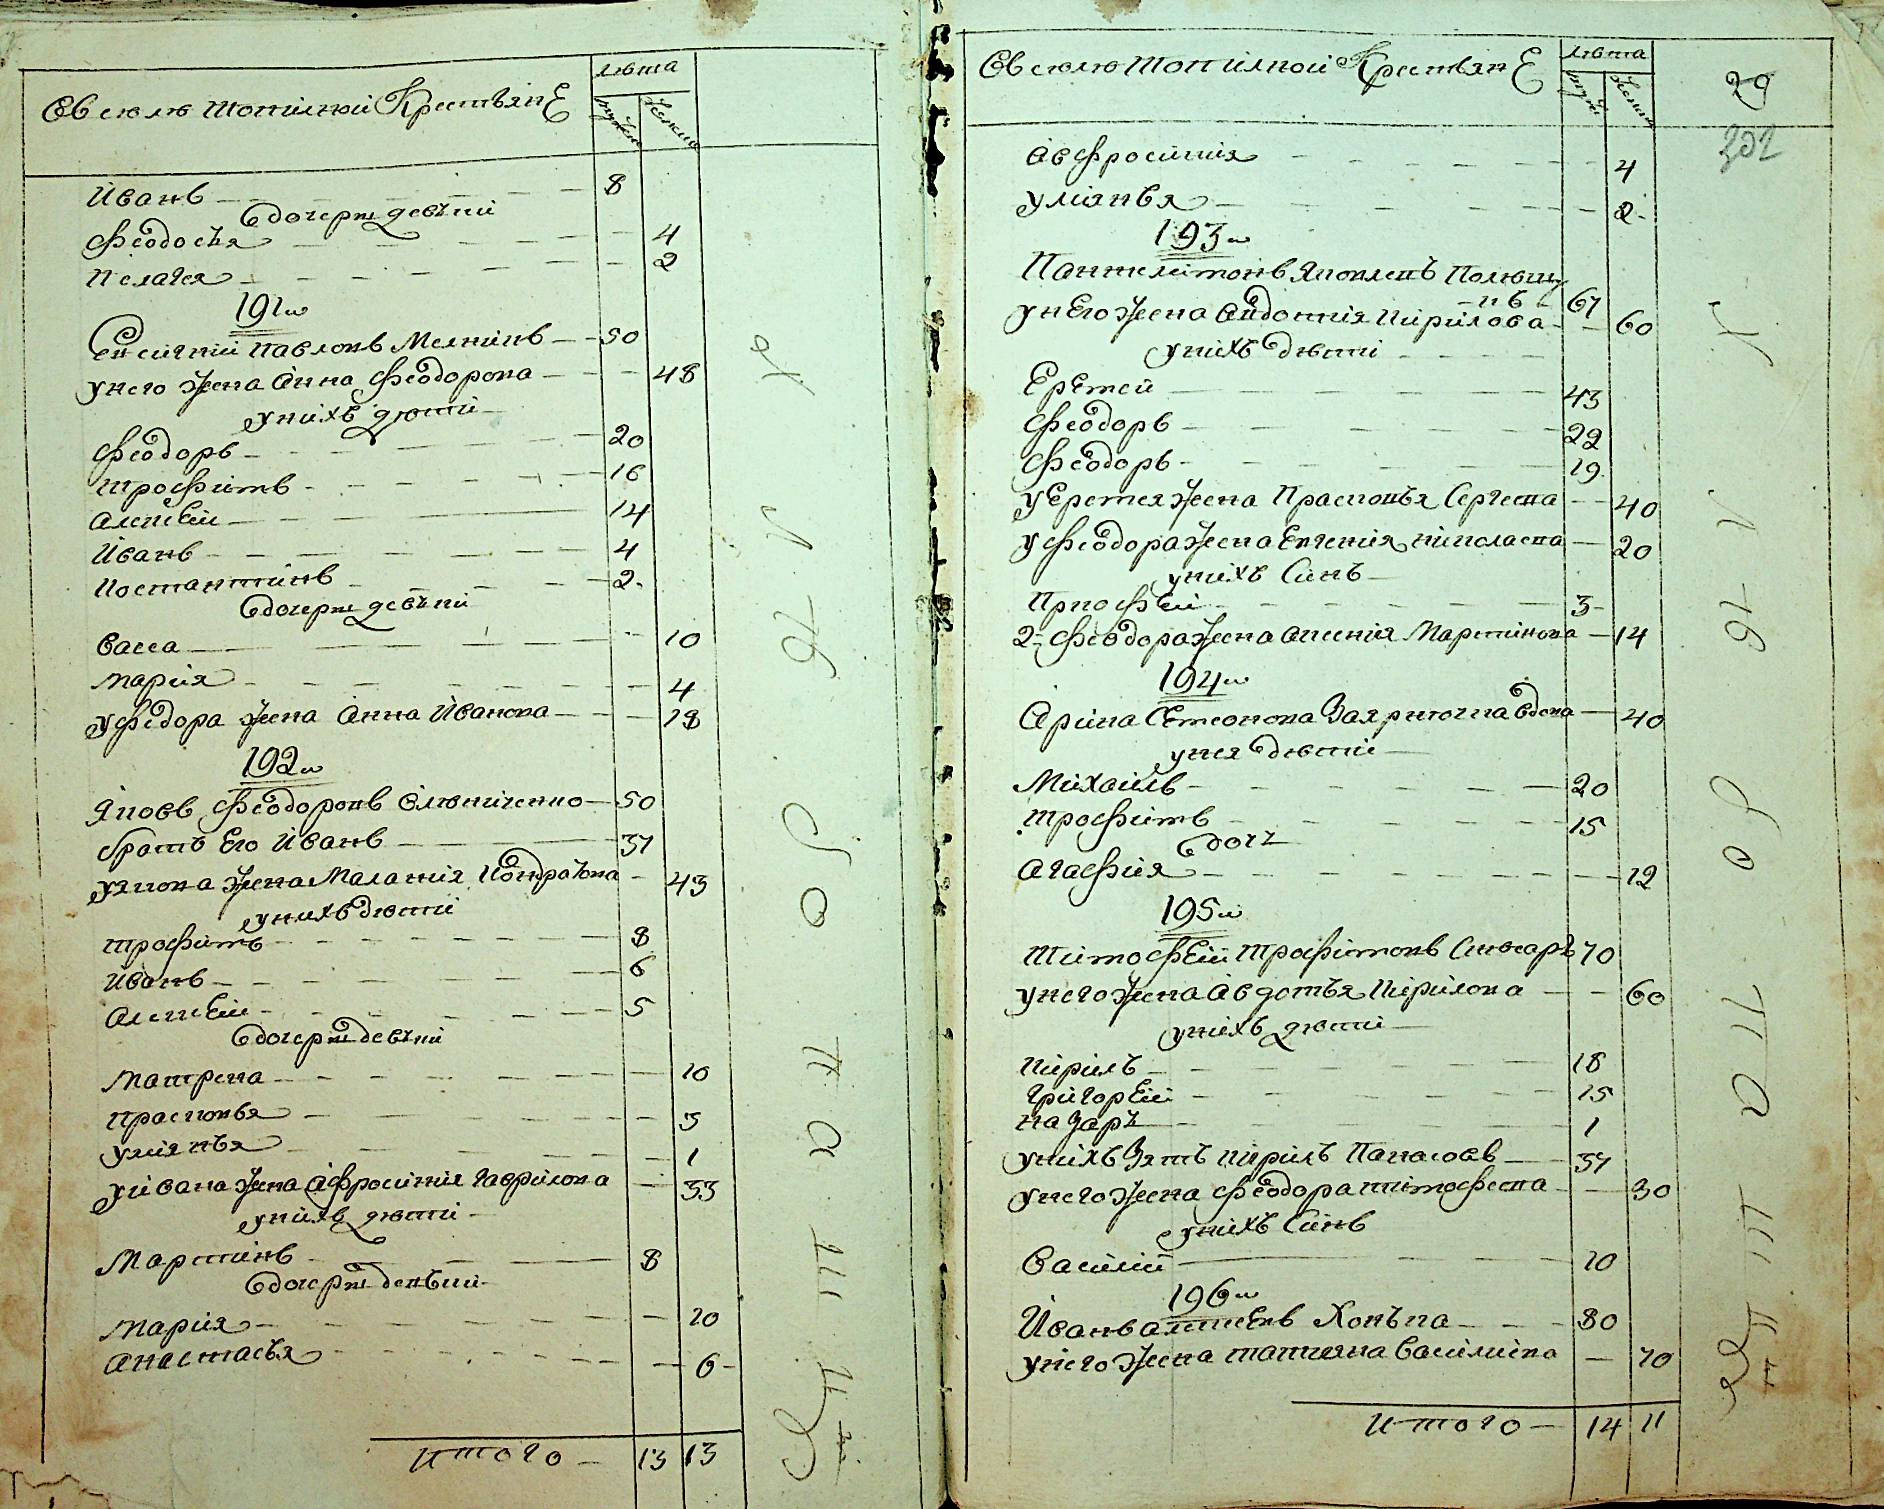 Въ селѣ Топилной Крестьянѣ
лѣта
мужес
женска
Иванъ 8
дочери девъки
Феодосъя 4
Пелагея 2
191й
Евсигний Павловъ Мелникъ 50
у него жена Анна Феодорова 48
у нихъ дѣти
Феодоръ 20
Трофимъ 16
Алексѣй 14
Иванъ 4
Костантинъ 2
дочери девъки
Васса 10
Мария 4
у Федора жена Анна Иванова 18
192й
Яковъ Феодоровъ 50
братъ Его Иванъ 37
у якова жена Малания Кондратъва 43
у нихъ дѣти
Трофимъ 8
Иванъ 6
Алексѣй 5
дочери девъки
Матрена 10
Прасковья 3
Улиянъя 1
у ивана жена Афросиния Гаврилова 33
у нихъ дѣти
Мартинъ 8
дочери девъки
Мария 10
Анастасъя 6
Итого 13 13
Въ селѣ Топилной Крестьянѣ
лѣта
мужес
женска
29
202
Авфросиния 4
Улиянъя 2
193й
Пантелимонъ Яковлевъ
67
у нЕго жена Авдотия Кирилова 60
у нихъ дѣти
Еремей 43
Феодоръ 22
Феодоръ 19
у Еремея жена Прасковъя Сергеева 40
у Феодора жена Евгения николаева 20
у нихъ Синъ
Прокофей 3
2й Феодора жена Аксения Мартинова 14
194й
Арина Семеонова вдова 40
у нея дѣти
Михаилъ 20
Трофимъ 15
дочъ
Агафия 12
195й
Тимофѣй Трофимовъ Слюсаръ 70
у него жена Авдотъя Кирилова 60
у нихъ дѣти
Кирилъ 18
Григорѣй 15
Назаръ 1
у нихъ Зятъ кирилъ Панасовъ 37
у него жена Феодора тимофеева 30
у нихъ Синъ
Василий 10
196й
Иванъ алексѣевъ 80
у него жена татияна Василиева 70
Итого 14 11